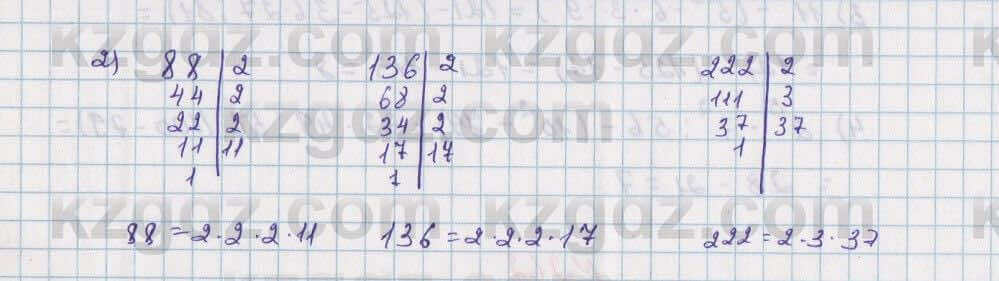 2) 88 | 2 136 | 2 222 | 2
44 | 2 68 | 2 111 | 3
22 | 2 34 | 2 37 | 37
11 | 11 17 | 17 1 |
1 | 1 |
88 = 2·2·2·11 136 = 2·2·2·17 222 = 2·3·37
kzgdz.com kzgdz.com kzgdz.com
kzgdz.com
kzgdz.com kzgdz.com kzgdz.com